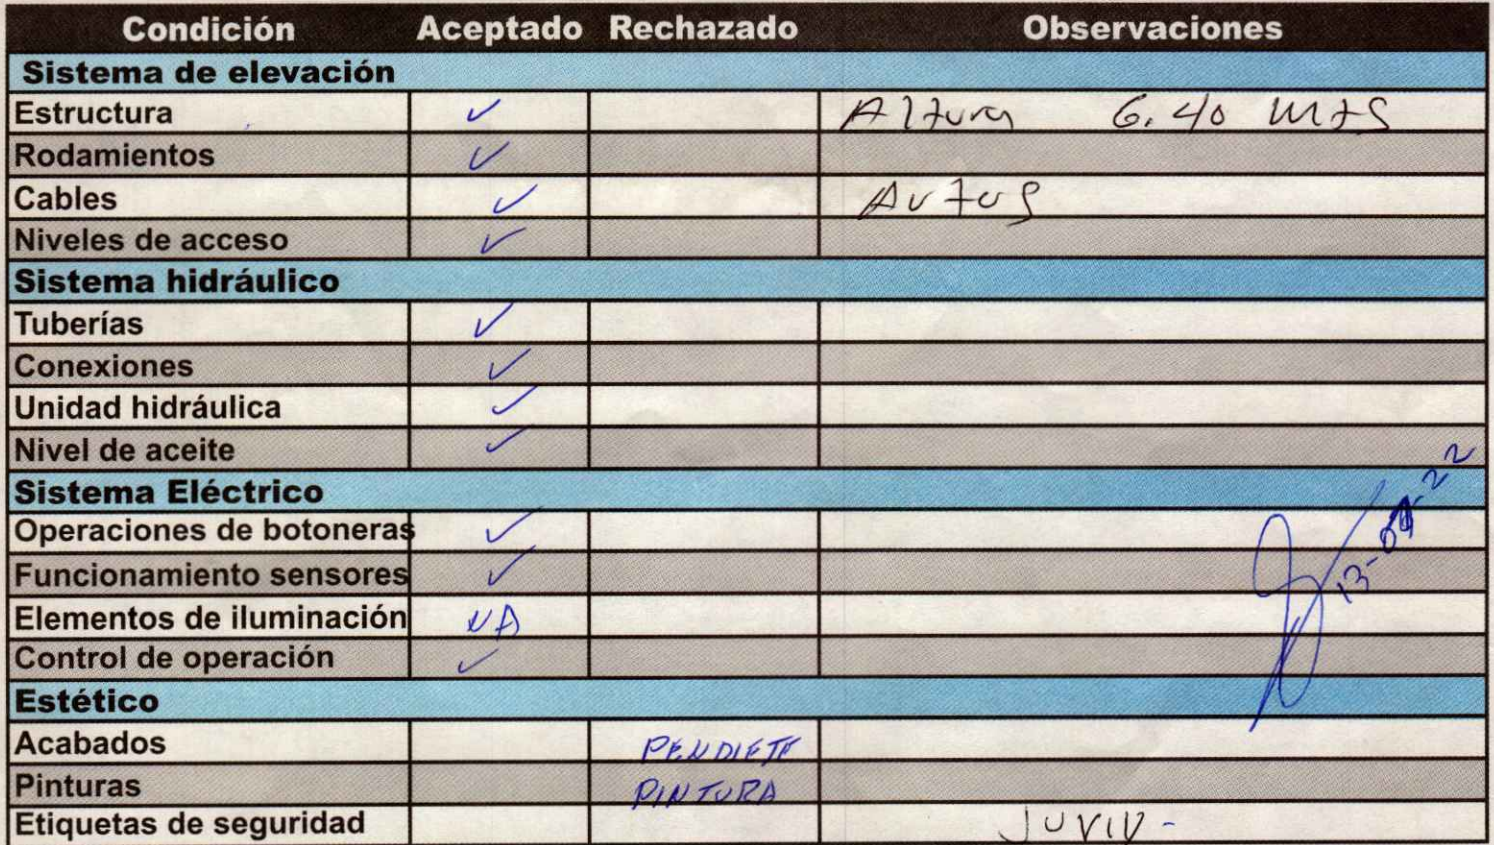 Condición Aceptado Rechazado Observaciones
Sistema de elevación
Estructura ✓ Altura 6.40 mts
Rodamientos ✓
Cables ✓ Autos
Niveles de acceso ✓
Sistema hidráulico
Tuberías ✓
Conexiones ✓
Unidad hidráulica ✓
Nivel de aceite ✓
Sistema Eléctrico
Operaciones de botoneras ✓
Funcionamiento sensores ✓
Elementos de iluminación NA
Control de operación ✓
Estético
Acabados PENDIETE
Pinturas PINTURA
Etiquetas de seguridad